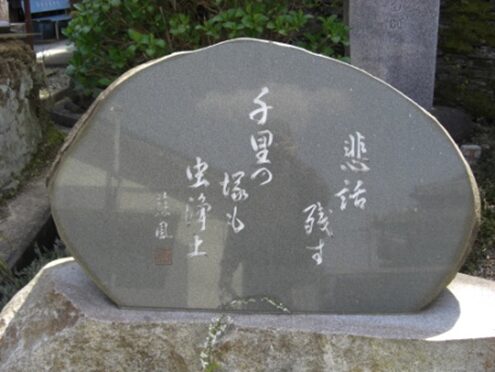 悲話
残す
千里の
塚も
虫浄土